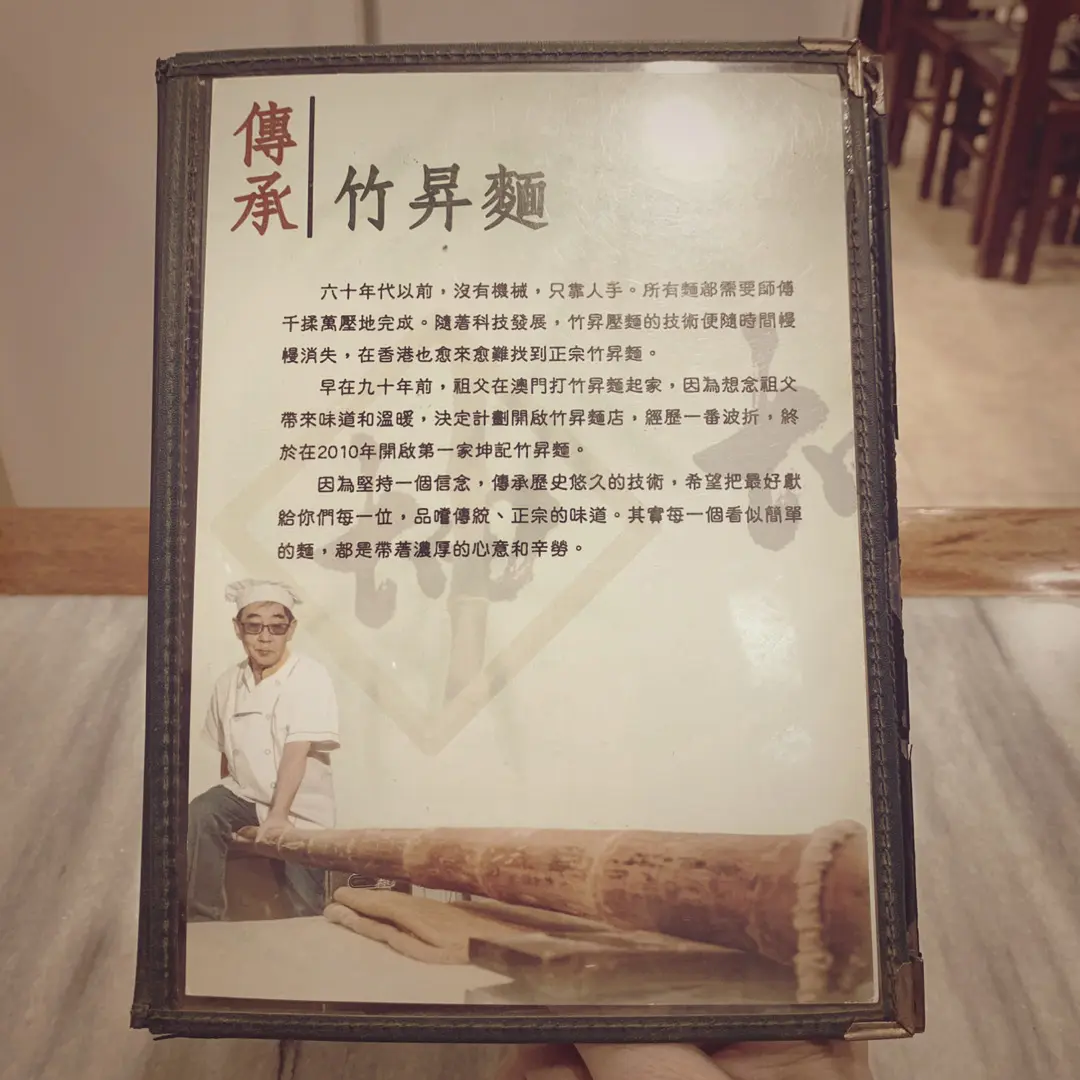 傳承
竹昇麵
六十年代以前，沒有機械，只靠人手。所有麵都需要師傅
千揉萬壓地完成。隨著科技發展，竹昇壓麵的技術便隨時間慢
慢消失，在香港也愈來愈難找到正宗竹昇麵。
早在九十年前，祖父在澳門打竹昇麵起家，因為想念祖父
帶來味道和溫暖，決定計劃開啟竹昇麵店，經歷一番波折，終
於在2010年開啟第一家坤記竹昇麵。
因為堅持一個信念，傳承歷史悠久的技術，希望把最好獻
給你們每一位，品嚐傳統、正宗的味道。其實每一個看似簡單
的麵，都是帶著濃厚的心意和辛勞。